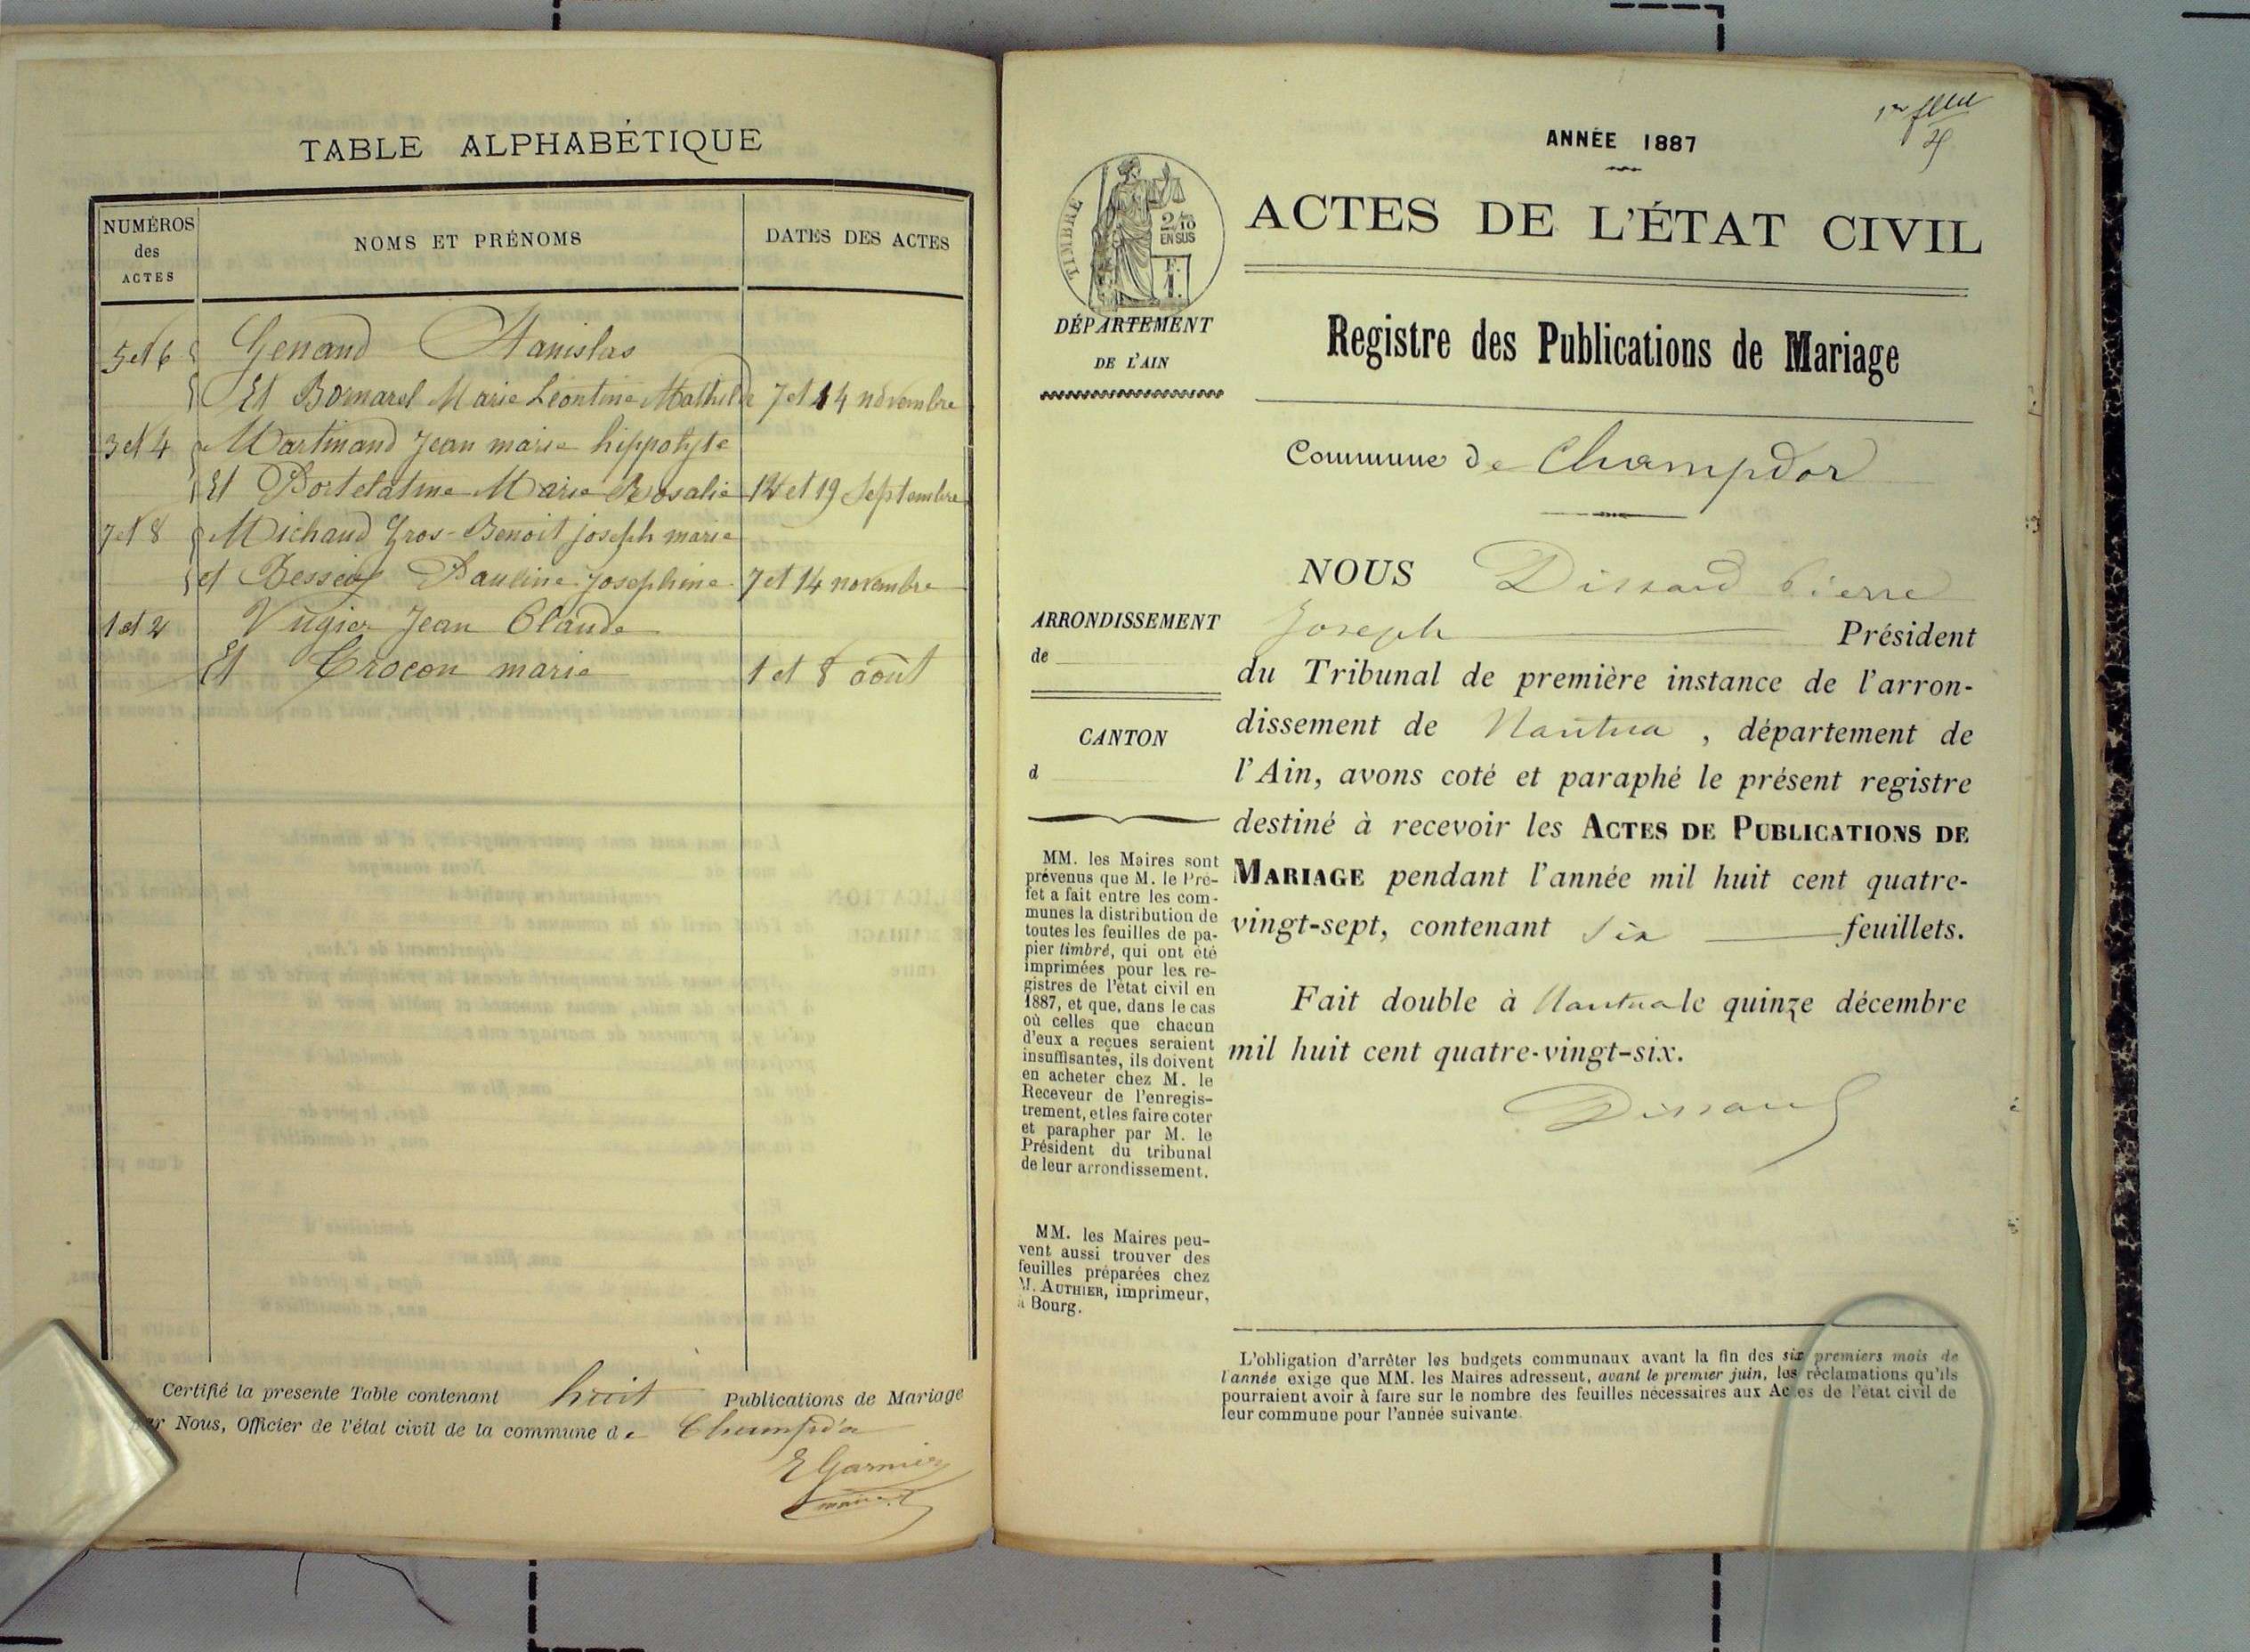 TABLE ALPHABÉTIQUE
NUMÉROS des ACTES
NOMS ET PRÉNOMS
DATES DES ACTES
5 et 6 Genand Stanislas
Et Bornarel Marie Léontine Mathilde 7 et 14 novembre
3 et 4 Martinand Jean marie hippolyte
Et Portelatine Marie Rosalie 12 et 19 Septembre
7 et 8 Michaud Gros-Benoit joseph marie
et Pauline Josephine 7 et 14 novembre
1 et 2 Vugier Jean Claude
Et Crocon marie 1 et 8 août
Certifié la presente Table contenant huit Publications de Mariage
par Nous, Officier de l'état civil de la commune de Champdor
E Garnier
maire
1er feuillet
ANNÉE 1887
TIMBRE
2/10
EN SUS
ACTES DE L'ÉTAT CIVIL
DÉPARTEMENT
DE L'AIN
Registre des Publications de Mariage
Commune de Champdor
ARRONDISSEMENT
de
CANTON
d
MM. les Maires sont
prévenus que M. le Pré-
fet a fait entre les com-
munes la distribution de
toutes les feuilles de pa-
pier timbré, qui ont été
imprimées pour les re-
gistres de l'état civil en
1887, et que, dans le cas
où celles que chacun
d'eux a reçues seraient
insuffisantes, ils doivent
en acheter chez M. le
Receveur de l'enregis-
trement, et les faire coter
et parapher par M. le
Président du tribunal
de leur arrondissement.
MM. les Maires peu-
vent aussi trouver des
feuilles préparées chez
M. AUTHIER, imprimeur,
à Bourg.
NOUS Dissard Pierre
Joseph Président
du Tribunal de première instance de l'arron-
dissement de Nantua , département de
l'Ain, avons coté et paraphé le présent registre
destiné à recevoir les ACTES DE PUBLICATIONS DE
MARIAGE pendant l'année mil huit cent quatre-
vingt-sept, contenant six feuillets.
Fait double à Nantua le quinze décembre
mil huit cent quatre-vingt-six.
Dissard
L'obligation d'arrêter les budgets communaux avant la fin des six premiers mois de
l'année exige que MM. les Maires adressent, avant le premier juin, les réclamations qu'ils
pourraient avoir à faire sur le nombre des feuilles nécessaires aux Actes de l'état civil de
leur commune pour l'année suivante.